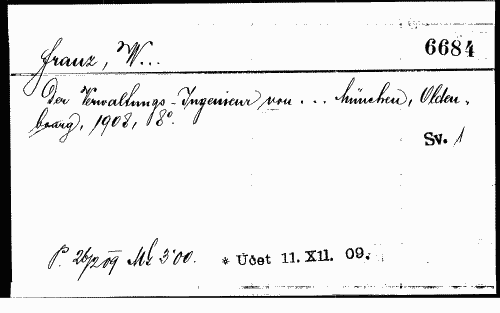 Franz, W...
6684
Der Verwaltungs-Ingenieur von ... München, Olden-
bourg, 1908, 8°.
Sv. 1
P. 26/2 09 Mk 3·00. * Účet 11. XII. 09.